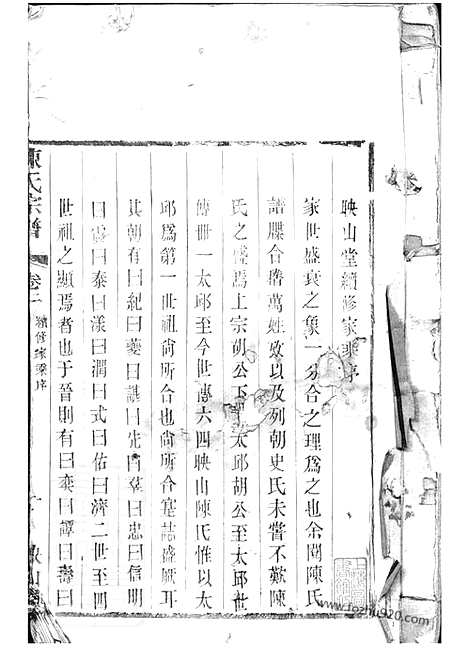 映山堂續修家乘序
家世盛衰之象一分合之理為之也余閱陳氏
譜牒合諸萬姓攷以及列朝史氏未嘗不歎陳
氏之盛焉上宗胡公下 太邱胡公至太邱世
傳世一太邱至今世傳六四映山陳氏惟以太
邱為第一世祖尚所合也尚所合蓋誌盛厥耳
其朝有曰紀曰夔曰諶曰先曰羣曰忠曰信明
曰 曰泰曰漾曰潤曰式曰佑曰濟二世至四
世祖之顯焉者也于晉則有曰奕曰譚曰壽曰
陳氏宗譜
卷二
續修家乘序
映山堂
www.fozhu920.com